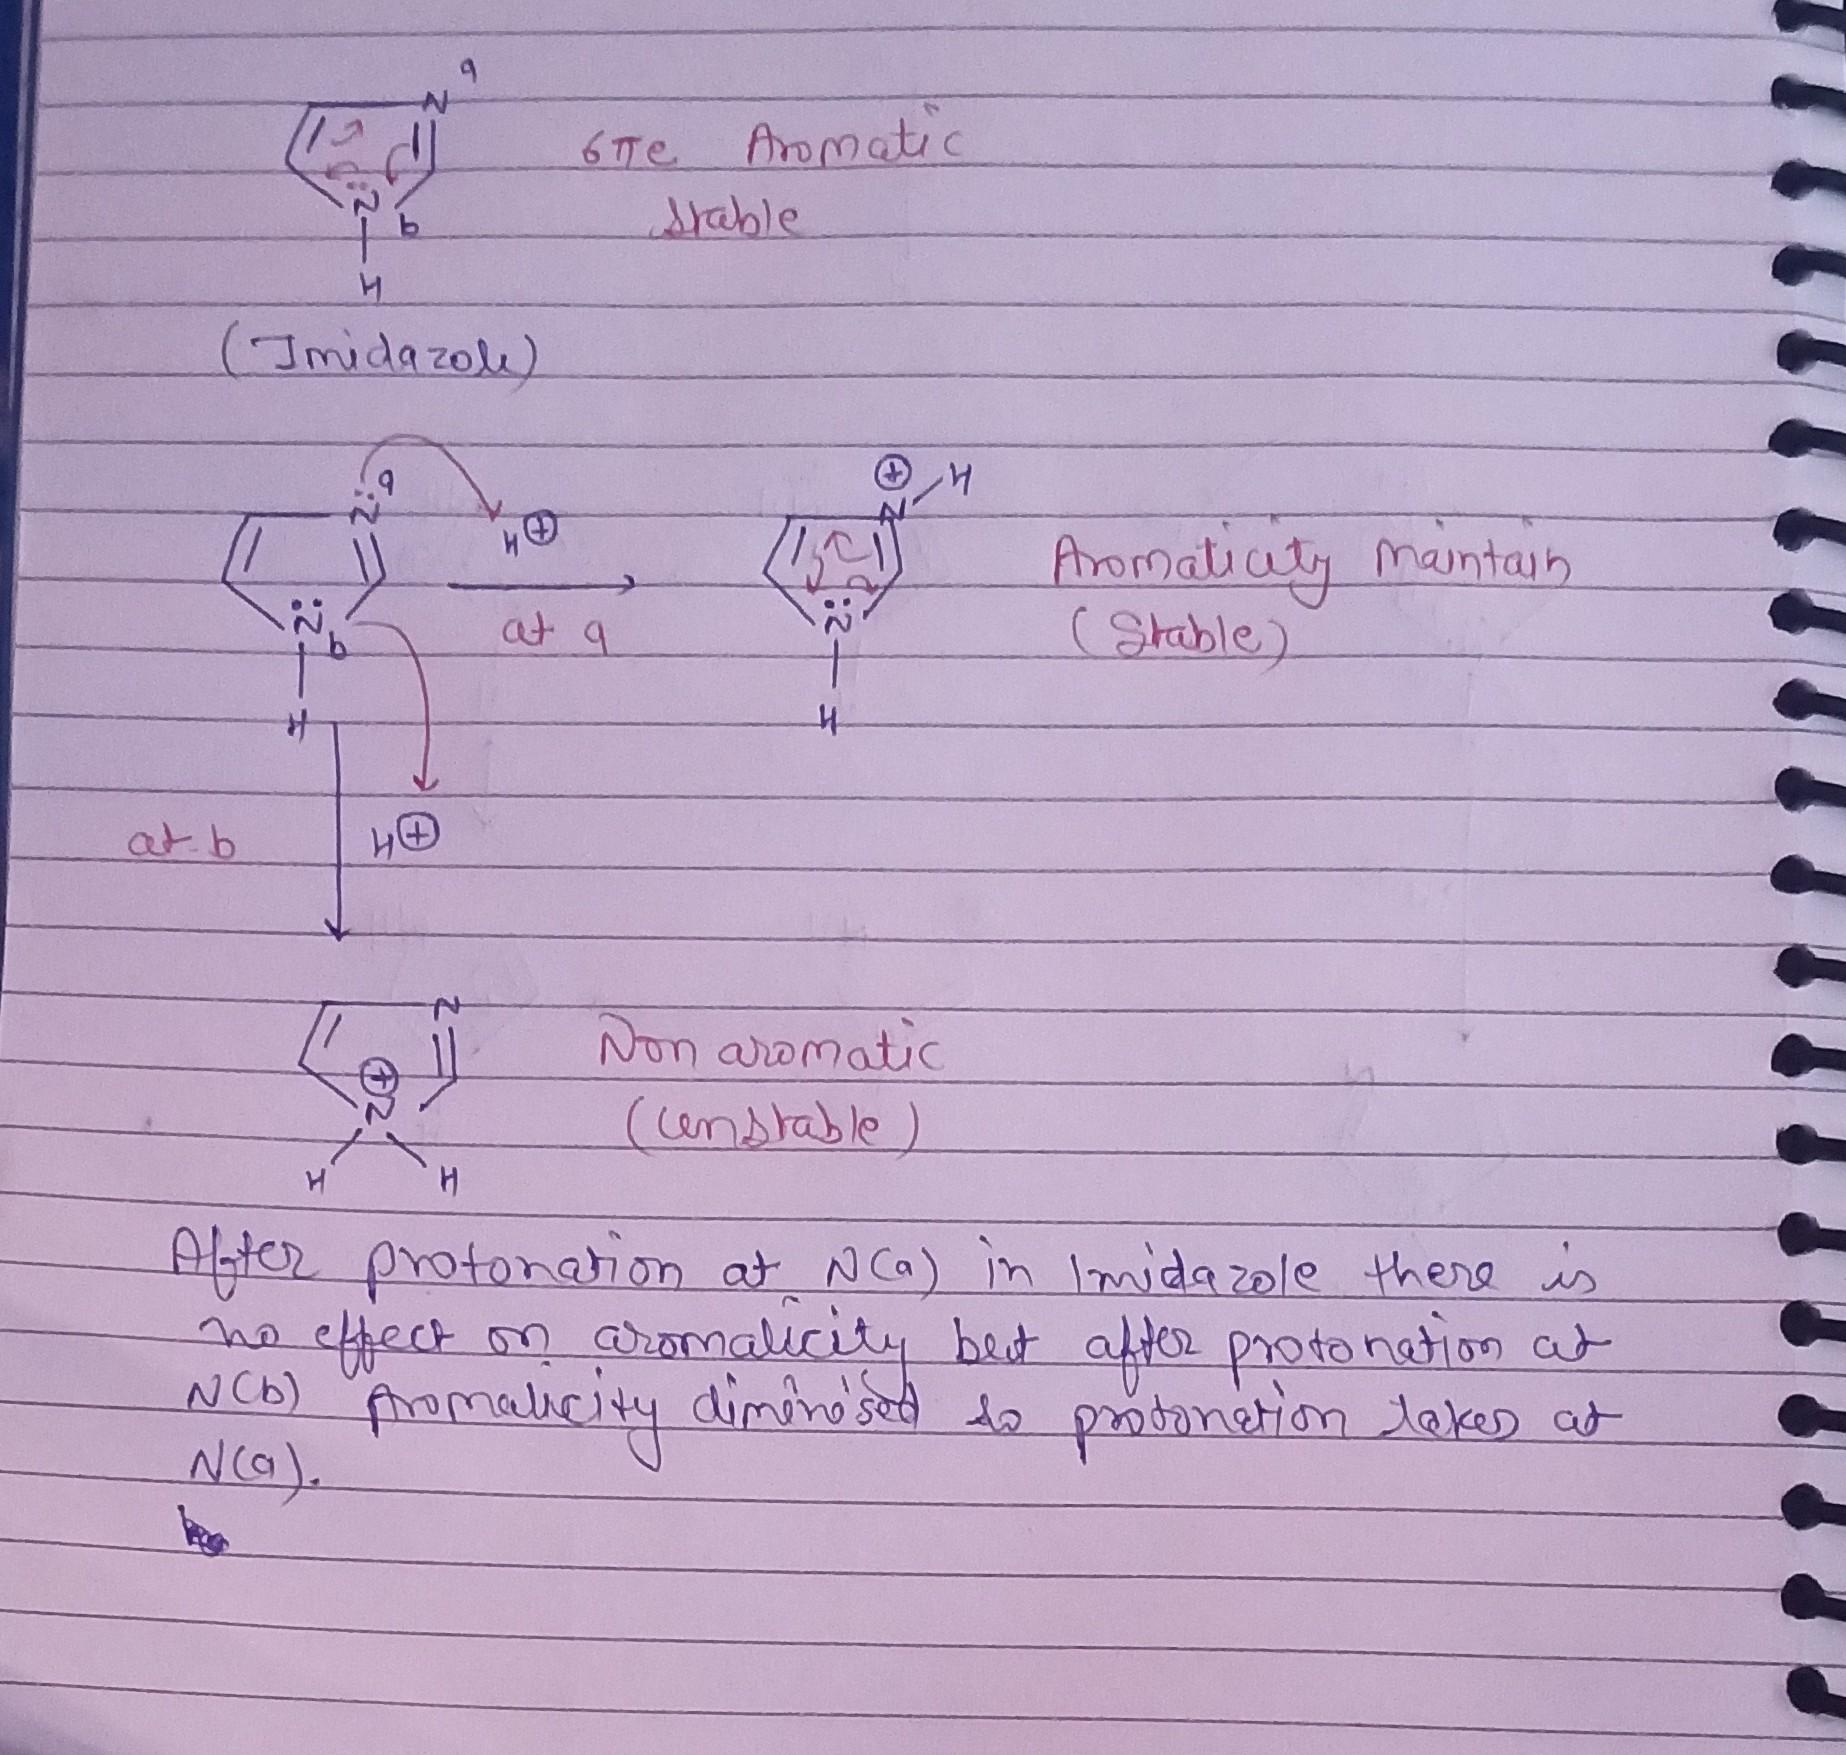 a
N
6πe Aromatic
N
b
Stable
H
(Imidazole)
⊕ H
a
N
N
H⊕
Aromaticity Maintain
N
b
at a
N
(Stable)
H
H
at b
H⊕
N
Non aromatic
⊕
N
(Unstable)
H H
After protonation at N(a) in Imidazole there is
no effect on aromaticity but after protonation at
N(b) Aromaticity diminised so protonation takes at
N(a).